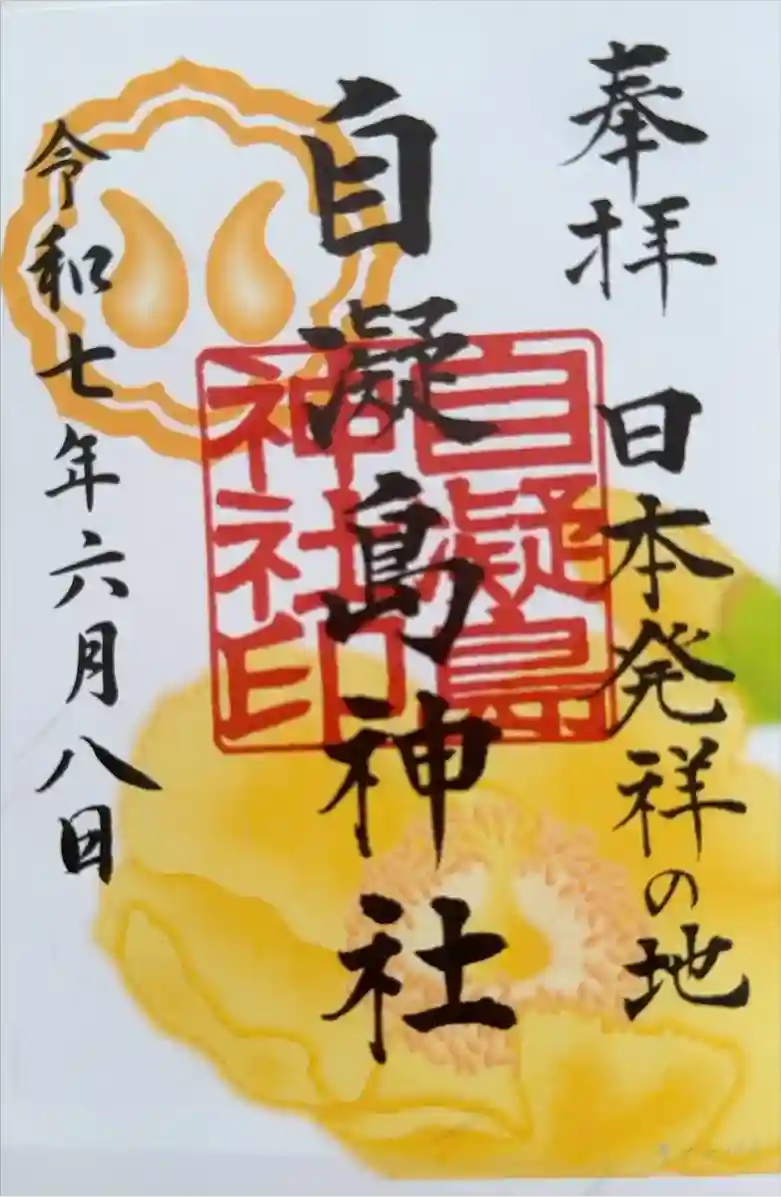 奉拝 日本発祥の地
自凝島神社
自凝島
神社印
令和七年六月八日